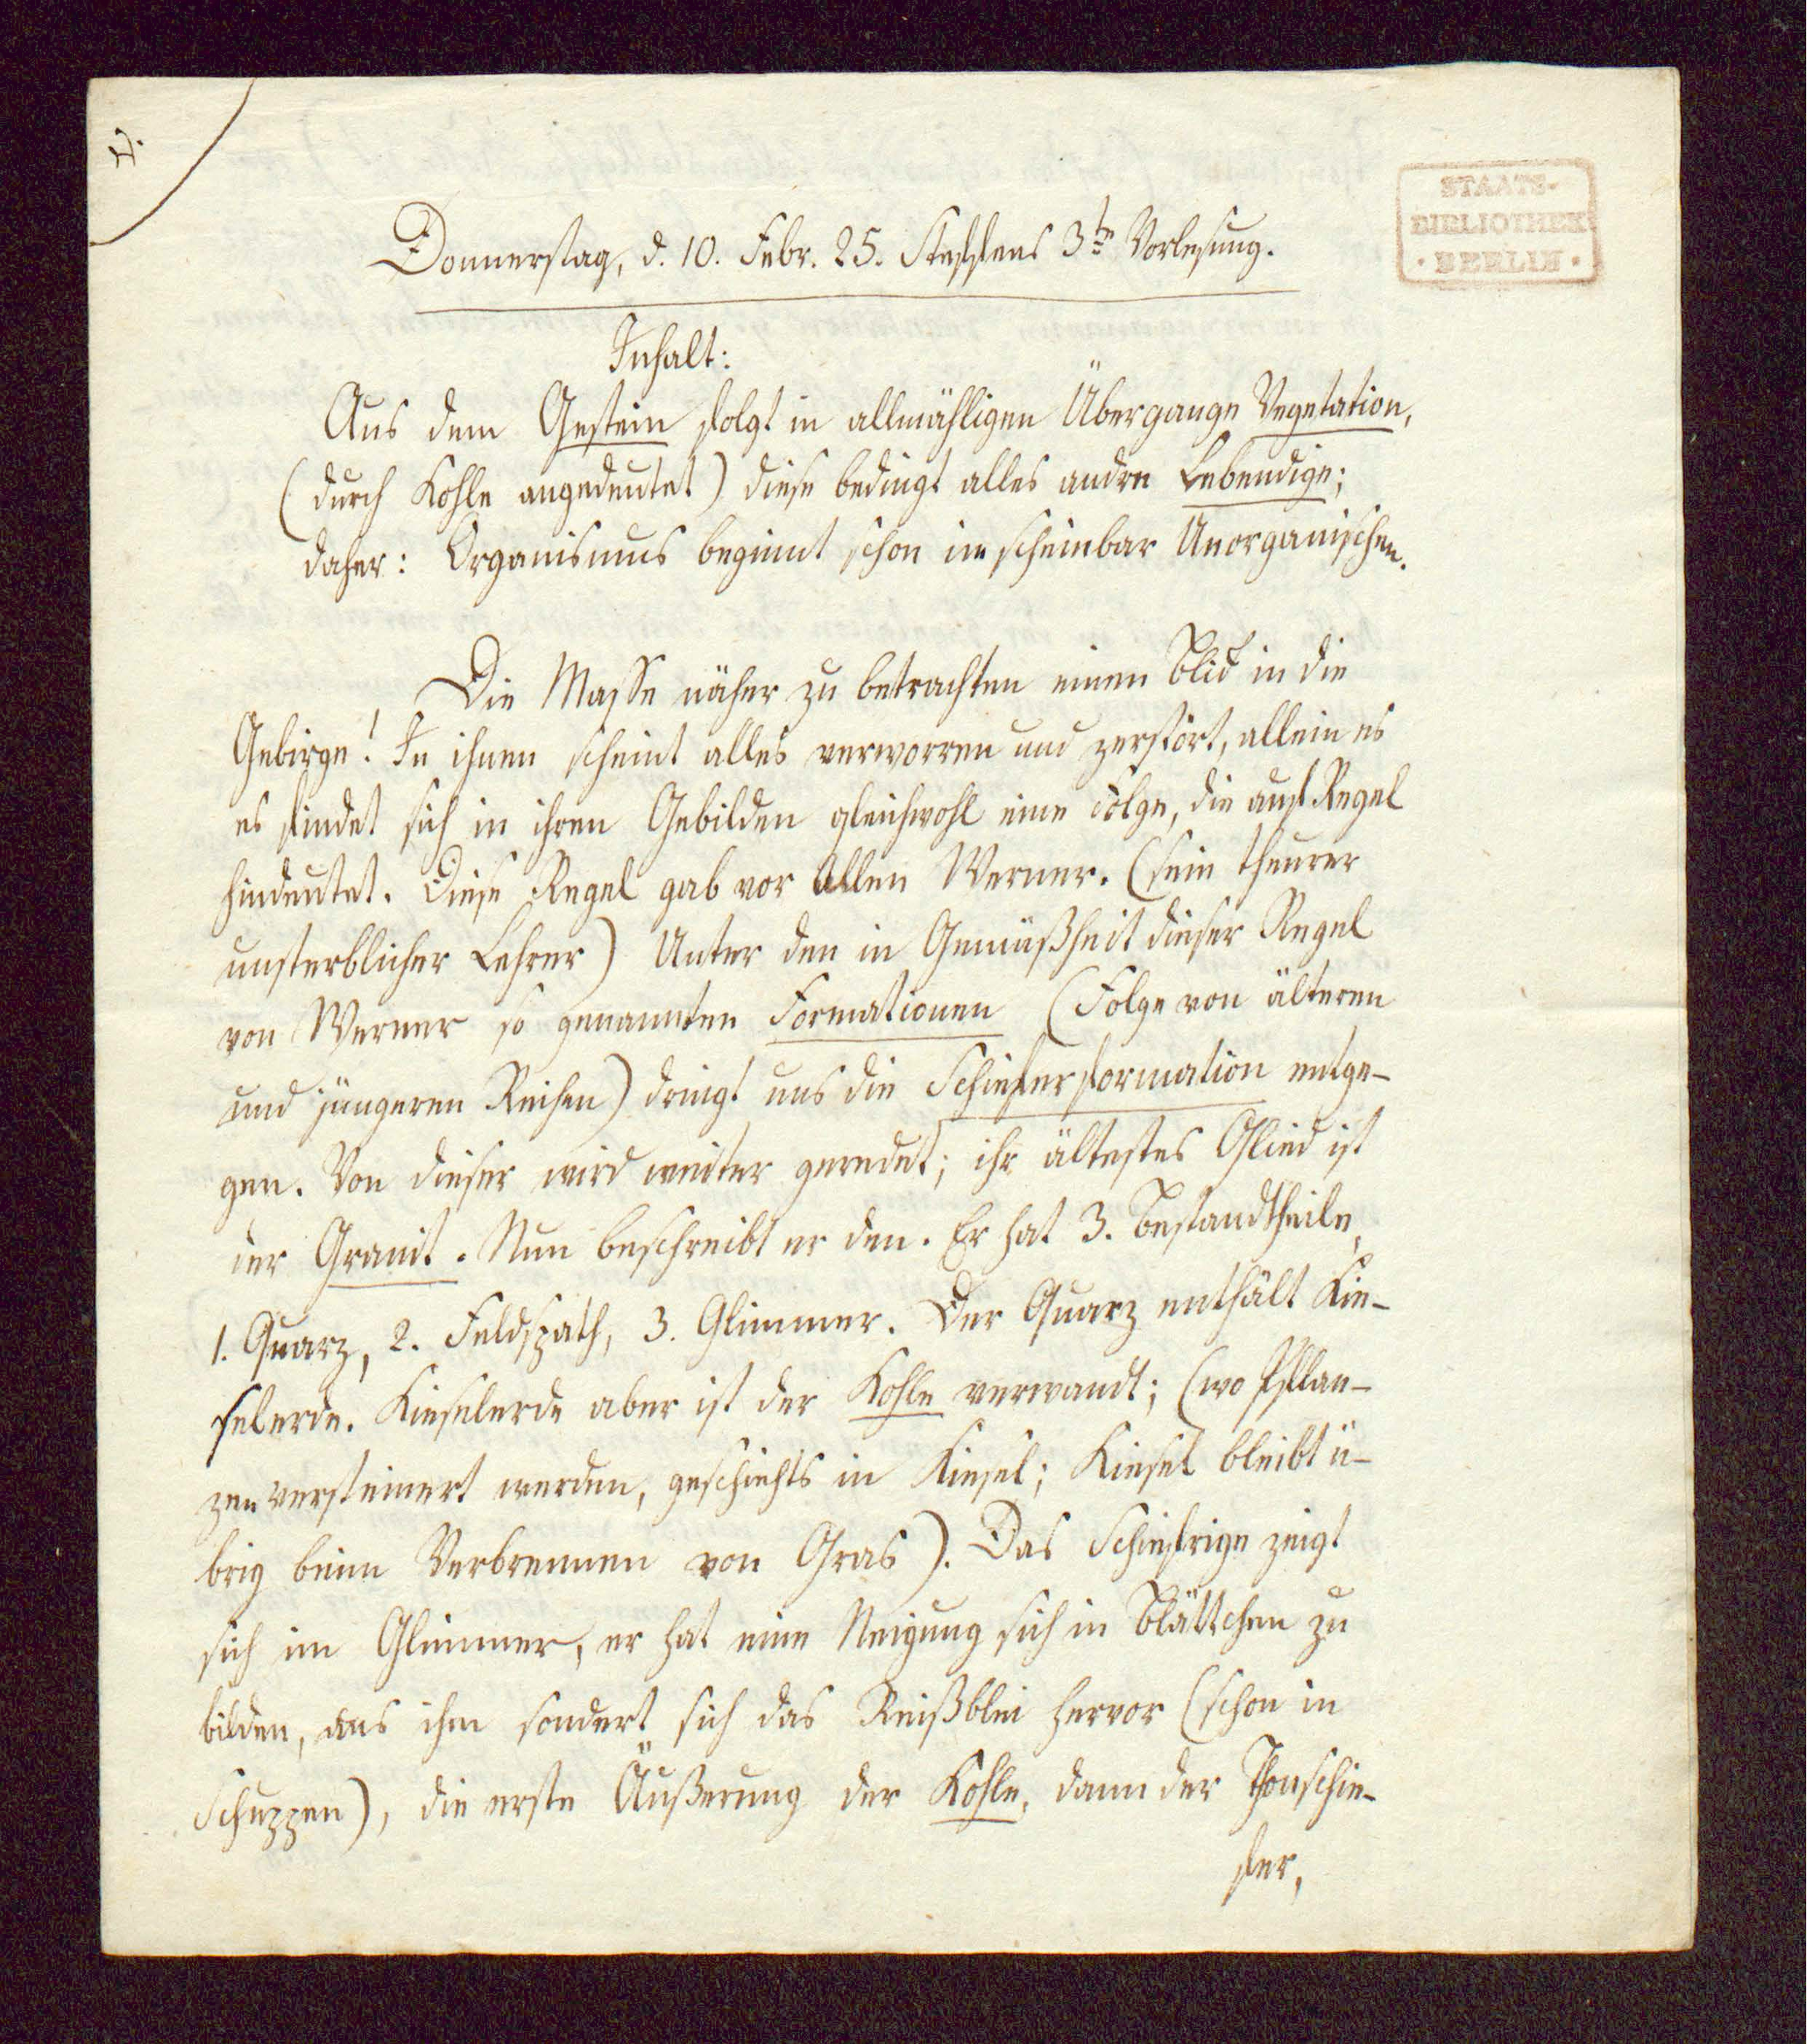 4.
STAATS-
BIBLIOTHEK
· BERLIN ·
Donnerstag, d. 10. Febr. 25. Steffens 3te Vorlesung.
Inhalt:
Aus dem Gestein folgt in allmähligen Übergange Vegetation,
(durch Kohle angedeutet) diese bedingt alles andre Lebendige;
daher: Organismus beginnt schon im scheinbar Unorganischen.
Die Masse näher zu betrachten einen Blick in die
Gebirge! In ihnen scheint alles verworren und zerstört, allein es
es findet sich in ihren Gebilden gleichwohl eine Folge, die auf Regel
hindeutet. Diese Regel gab vor Allen Werner. (sein theurer
unsterblicher Lehrer) Unter den in Gemäßheit dieser Regel
von Werner so genannten Formationen (Folge von älteren
und jüngeren Reihen) dringt uns die Schieferformation entge-
gen. Von dieser wird weiter geredet; ihr ältestes Glied ist
der Granit. Nun beschreibt er den. Er hat 3. Bestandtheile,
1. Quarz, 2. Feldspath, 3. Glimmer. Der Quarz enthält Kie-
selerde. Kieselerde aber ist der Kohle verwandt; (wo Pflan-
zen versteinert werden, geschiehts in Kiesel; Kiesel bleibt ü-
brig beim Verbrennen von Gras). Das Schiefrige zeigt
sich im Glimmer, er hat eine Neigung sich in Blättchen zu
bilden, aus ihm sondert sich das Reißblei hervor (schon in
Schuppen), die erste Äußerung der Kohle, dann der Thonschie-
fer,